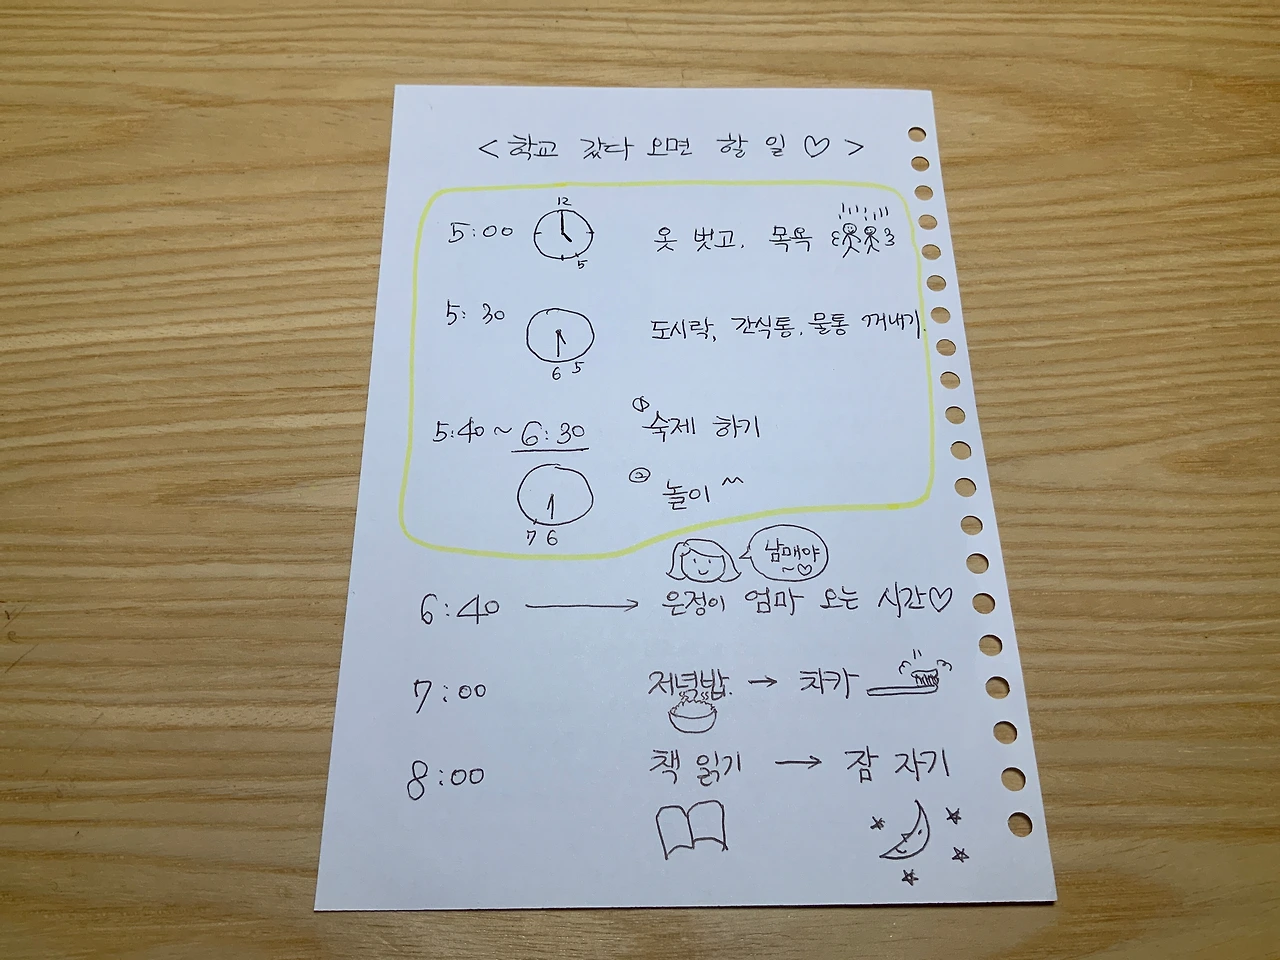 < 학교 갔다 오면 할 일 ♡ >
12
5:00 옷 벗고, 목욕
5
5:30 도시락, 간식통, 물통 꺼내기.
6 5
5:40 ~ 6:30 ① 숙제 하기
② 놀이 ^^
7 6
남매야
~♡
6:40 → 은정이 엄마 오는 시간♡
7:00 저녁밥. → 치카
8:00 책 읽기 → 잠 자기